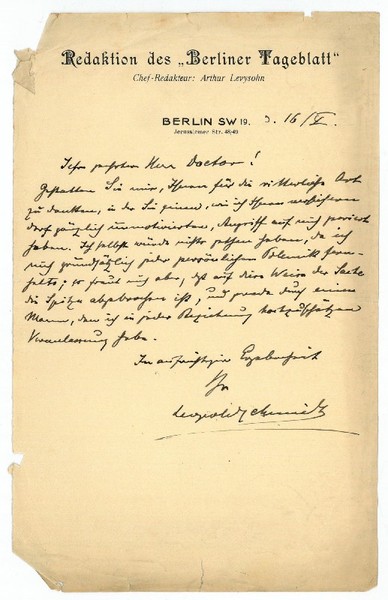 Redaktion des „Berliner Tageblatt“
Chef-Redakteur: Arthur Levysohn
BERLIN SW 19, d. 16/V.
Jerusalemer Str. 48/49
Sehr geehrter Herr Doctor!
Gestatten Sie mir, Ihnen für die ritterliche Art
zu danken, in der Sie jenen, wie ich Ihnen versichern
darf gänzlich unmotivirten, Angriff auf mich parirt
haben. Ich selbst würde nichts gethan haben, da ich
mich grundsätzlich jeder persönlichen Polemik fern-
halte; so freut mich aber, daß auf diese Weise der Sache
die Spitze abgebrochen ist, und gerade durch einen
Mann, den ich in jeder Beziehung hochzuschätzen
Veranlassung habe.
In aufrichtiger Ergebenheit
Ihr
Leopold Schmidt